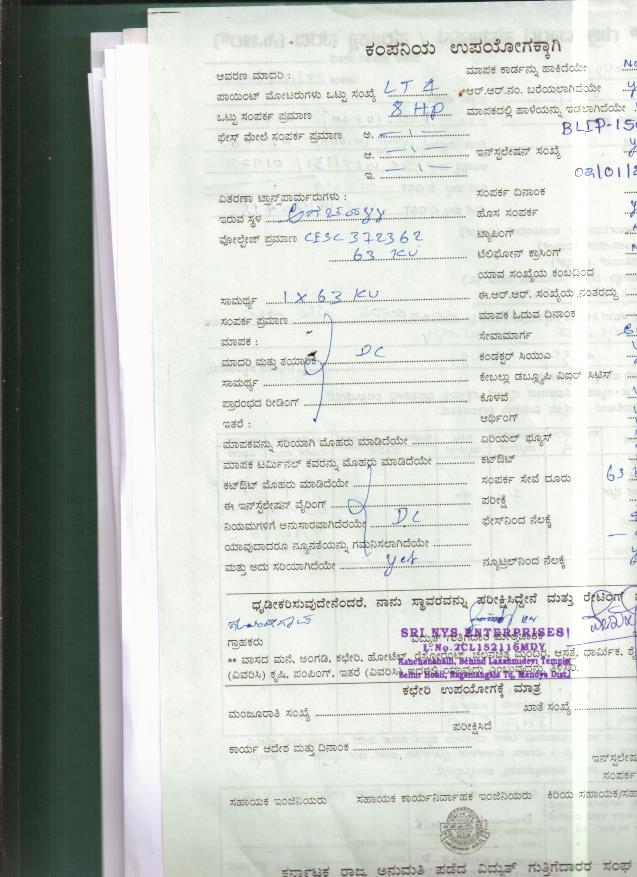 ಕಂಪನಿಯ ಉಪಯೋಗಕ್ಕಾಗಿ
ಆವರಣ ಮಾದರಿ :
ಮಾಪಕ ಕಾರ್ಡನ್ನು ಹಾಕಿದೆಯೇ
ಪಾಯಿಂಟ್ ಮೋಟರುಗಳು ಒಟ್ಟು ಸಂಖ್ಯೆ LT 4
ಆರ್.ಆರ್.ನಂ. ಬರೆಯಲಾಗಿದೆಯೇ
ಒಟ್ಟು ಸಂಪರ್ಕ ಪ್ರಮಾಣ 8 HP
ಮಾಪಕದಲ್ಲಿ ಹಾಳೆಯನ್ನು ಇಡಲಾಗಿದೆಯೇ
ಫೇಸ್ ಮೇಲೆ ಸಂಪರ್ಕ ಪ್ರಮಾಣ ಅ. -1-
ಆ. -1- ಇನ್‌ಸ್ಟಲೇಷನ್ ಸಂಖ್ಯೆ
ಇ. -1-
ವಿತರಣಾ ಟ್ರಾನ್ಸ್‌ಫಾರ್ಮರುಗಳು :
ಸಂಪರ್ಕ ದಿನಾಂಕ
ಇರುವ ಸ್ಥಳ
ಹೊಸ ಸಂಪರ್ಕ
ವೋಲ್ಟೇಜ್ ಪ್ರಮಾಣ CESC 372362
ಟ್ಯಾಪಿಂಗ್
63 KV
ಟೆಲಿಫೋನ್ ಕ್ರಾಸಿಂಗ್
ಯಾವ ಸಂಖ್ಯೆಯ ಕಂಬದಿಂದ
ಸಾಮರ್ಥ್ಯ 1 X 63 KV
ಈ.ಆರ್.ಆರ್. ಸಂಖ್ಯೆಯ ನಂತರದ್ದು
ಸಂಪರ್ಕ ಪ್ರಮಾಣ
ಮಾಪಕ ಓದುವ ದಿನಾಂಕ
ಮಾಪಕ :
ಸೇವಾಮಾರ್ಗ
ಮಾದರಿ ಮತ್ತು ತಯಾರಿಕೆ DC
ಕಂಡಕ್ಟರ್ ಸಿಯುಎ
ಸಾಮರ್ಥ್ಯ
ಕೇಬಲ್ಲು ಡಬ್ಲ್ಯೂಪಿ ವಿಐಲ್ ಸಿಟಿಸ್
ಪ್ರಾರಂಭದ ರೀಡಿಂಗ್
ಕೊಳವೆ
ಇತರೆ :
ಆರ್ಥಿಂಗ್
ಮಾಪಕವನ್ನು ಸರಿಯಾಗಿ ಮೊಹರು ಮಾಡಿದೆಯೇ
ಏರಿಯಲ್ ಫ್ಯೂಸ್
ಮಾಪಕ ಟರ್ಮಿನಲ್ ಕವರನ್ನು ಮೊಹರು ಮಾಡಿದೆಯೇ
ಕಟ್‌ಔಟ್
ಕಟ್‌ಔಟ್ ಮೊಹರು ಮಾಡಿದೆಯೇ
ಸಂಪರ್ಕ ಸೇವೆ ದೂರು
ಈ ಇನ್‌ಸ್ಟೆಲೇಷನ್ ವೈರಿಂಗ್
ಪರೀಕ್ಷೆ
ನಿಯಮಗಳಿಗೆ ಅನುಸಾರವಾಗಿದೆರೆಯೇ DC
ಫೇಸ್‌ನಿಂದ ನೆಲಕ್ಕೆ
ಯಾವುದಾದರೂ ನ್ಯೂನತೆಯನ್ನು ಗಮನಿಸಲಾಗಿದೆಯೇ
ಮತ್ತು ಅದು ಸರಿಯಾಗಿದೆಯೇ yes
ನ್ಯೂಟ್ರಲ್‌ನಿಂದ ನೆಲಕ್ಕೆ
ಧೃಡೀಕರಿಸುವುದೇನೆಂದರೆ, ನಾನು ಸ್ಥಾವರವನ್ನು ಪರೀಕ್ಷಿಸಿದ್ದೇನೆ ಮತ್ತು ರೇಟಿಂಗ್
SRI NYS ENTERPRISES
ಗ್ರಾಹಕರು
L.No.2CL152116MDY
** ವಾಸದ ಮನೆ, ಅಂಗಡಿ, ಕಛೇರಿ, ಹೋಟೆಲ್,
Kanchanahalli, Behind Lakshmidevi Temple
(ವಿವರಿಸಿ) ಕೃಷಿ, ಪಂಪಿಂಗ್, ಇತರೆ (ವಿವರಿಸಿ)
Bellur Hobli, Nagamangala Tq, Mandya Dist.
ಕಛೇರಿ ಉಪಯೋಗಕ್ಕೆ ಮಾತ್ರ
ಮಂಜೂರಾತಿ ಸಂಖ್ಯೆ
ಖಾತೆ ಸಂಖ್ಯೆ
ಪರೀಕ್ಷಿಸಿದೆ
ಕಾರ್ಯ ಆದೇಶ ಮತ್ತು ದಿನಾಂಕ
ಸಹಾಯಕ ಇಂಜಿನಿಯರು ಸಹಾಯಕ ಕಾರ್ಯನಿರ್ವಾಹಕ ಇಂಜಿನಿಯರು ಕಿರಿಯ ಸಹಾಯಕ
ಕರ್ನಾಟಕ ರಾಜ್ಯ ಅನುಮತಿ ಪಡೆದ ವಿದ್ಯುತ್ ಗುತ್ತಿಗೆದಾರರ ಸಂಘ